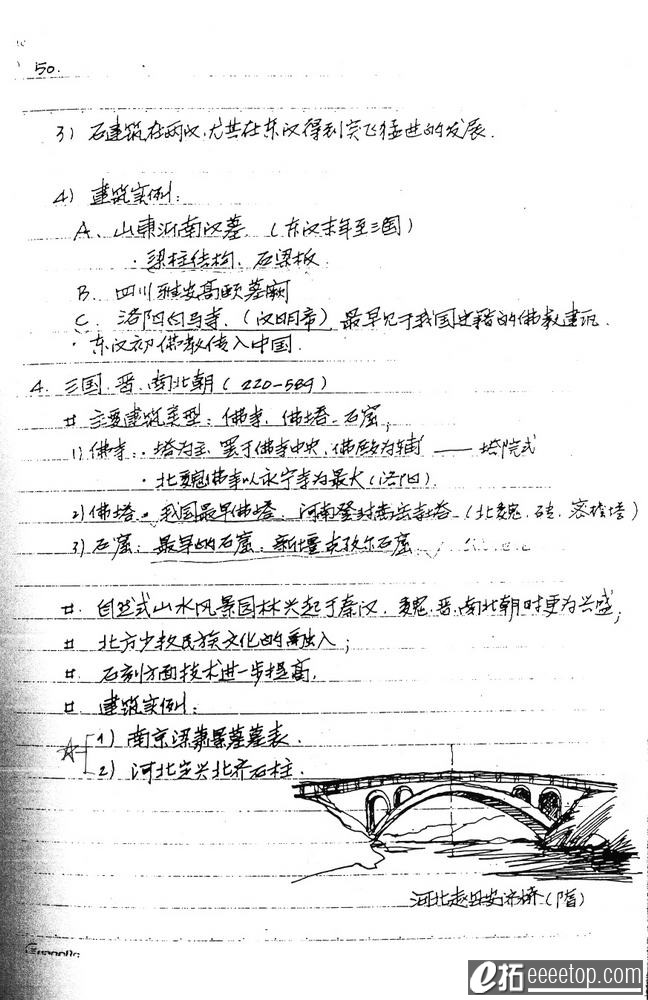 50.
3) 石建筑在两汉,尤其在东汉得到突飞猛进的发展.
4) 建筑实例:
A、山東沂南汉墓.(东汉末年至三国)
·梁柱结构、石梁板
B、四川雅安高颐墓阙
C、洛阳白马寺.(汉明帝) 最早见于我国史籍的佛教建筑.
·东汉初佛教传入中国.
4. 三国.晋.南北朝(220-589)
# 主要建筑类型:佛寺、佛塔、石窟;
1) 佛寺:·塔为主、置于佛寺中央,佛殿为辅 —— 塔院式
·北魏佛寺以永宁寺为最大(洛阳).
2) 佛塔。我国最早佛塔:河南登封嵩岳寺塔(北魏、砖、密檐塔)
3) 石窟:最早的石窟:新疆克孜尔石窟
# 自然式山水风景园林兴起于秦汉.魏.晋.南北朝时更为兴盛;
# 北方少数民族文化的融入;
# 石刻方面技术进一步提高.
# 建筑实例:
1) 南京梁萧景墓墓表.
2) 河北定兴北齐石柱.
河北赵县安济桥(隋)
e拓eeeetop.com